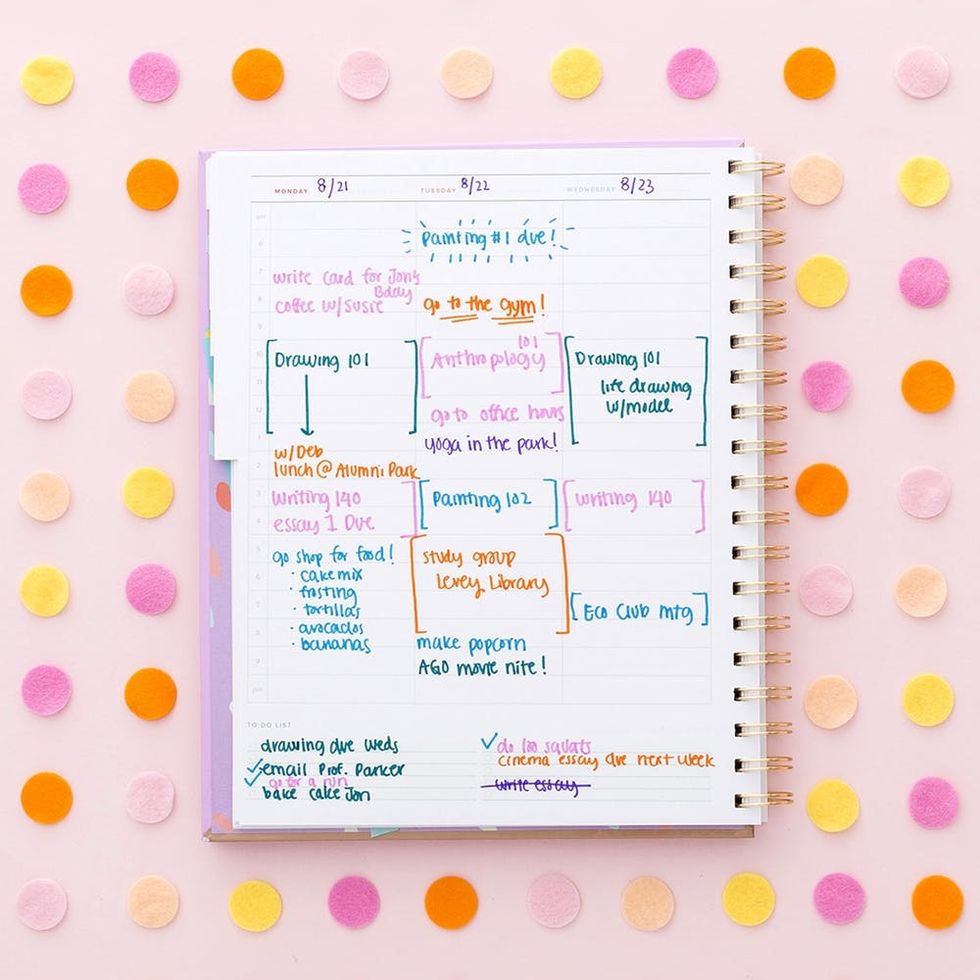 MONDAY 8/21
TUESDAY 8/22
WEDNESDAY 8/23
write card for Jon's
Bday
coffee w/Susie
Drawing 101
w/Deb
lunch @ Alumni Park
Writing 140
essay 1 Due
go shop for food!
· cake mix
· frosting
· tortillas
· avocados
· bananas
Painting #1 due!
go to the gym!
Anthropology 101
go to office hours
yoga in the park!
Painting 102
study group
Levey Library
make popcorn
AGO movie nite!
Drawing 101
life drawing
w/model
Writing 140
Eco Club mtg
7
8
9
10
11
12
1
2
3
4
5
6
7
8
9
TO DO LIST
drawing due weds
email Prof. Parker
go for a run
bake cake Jon
do 100 squats
cinema essay due next week
write essay